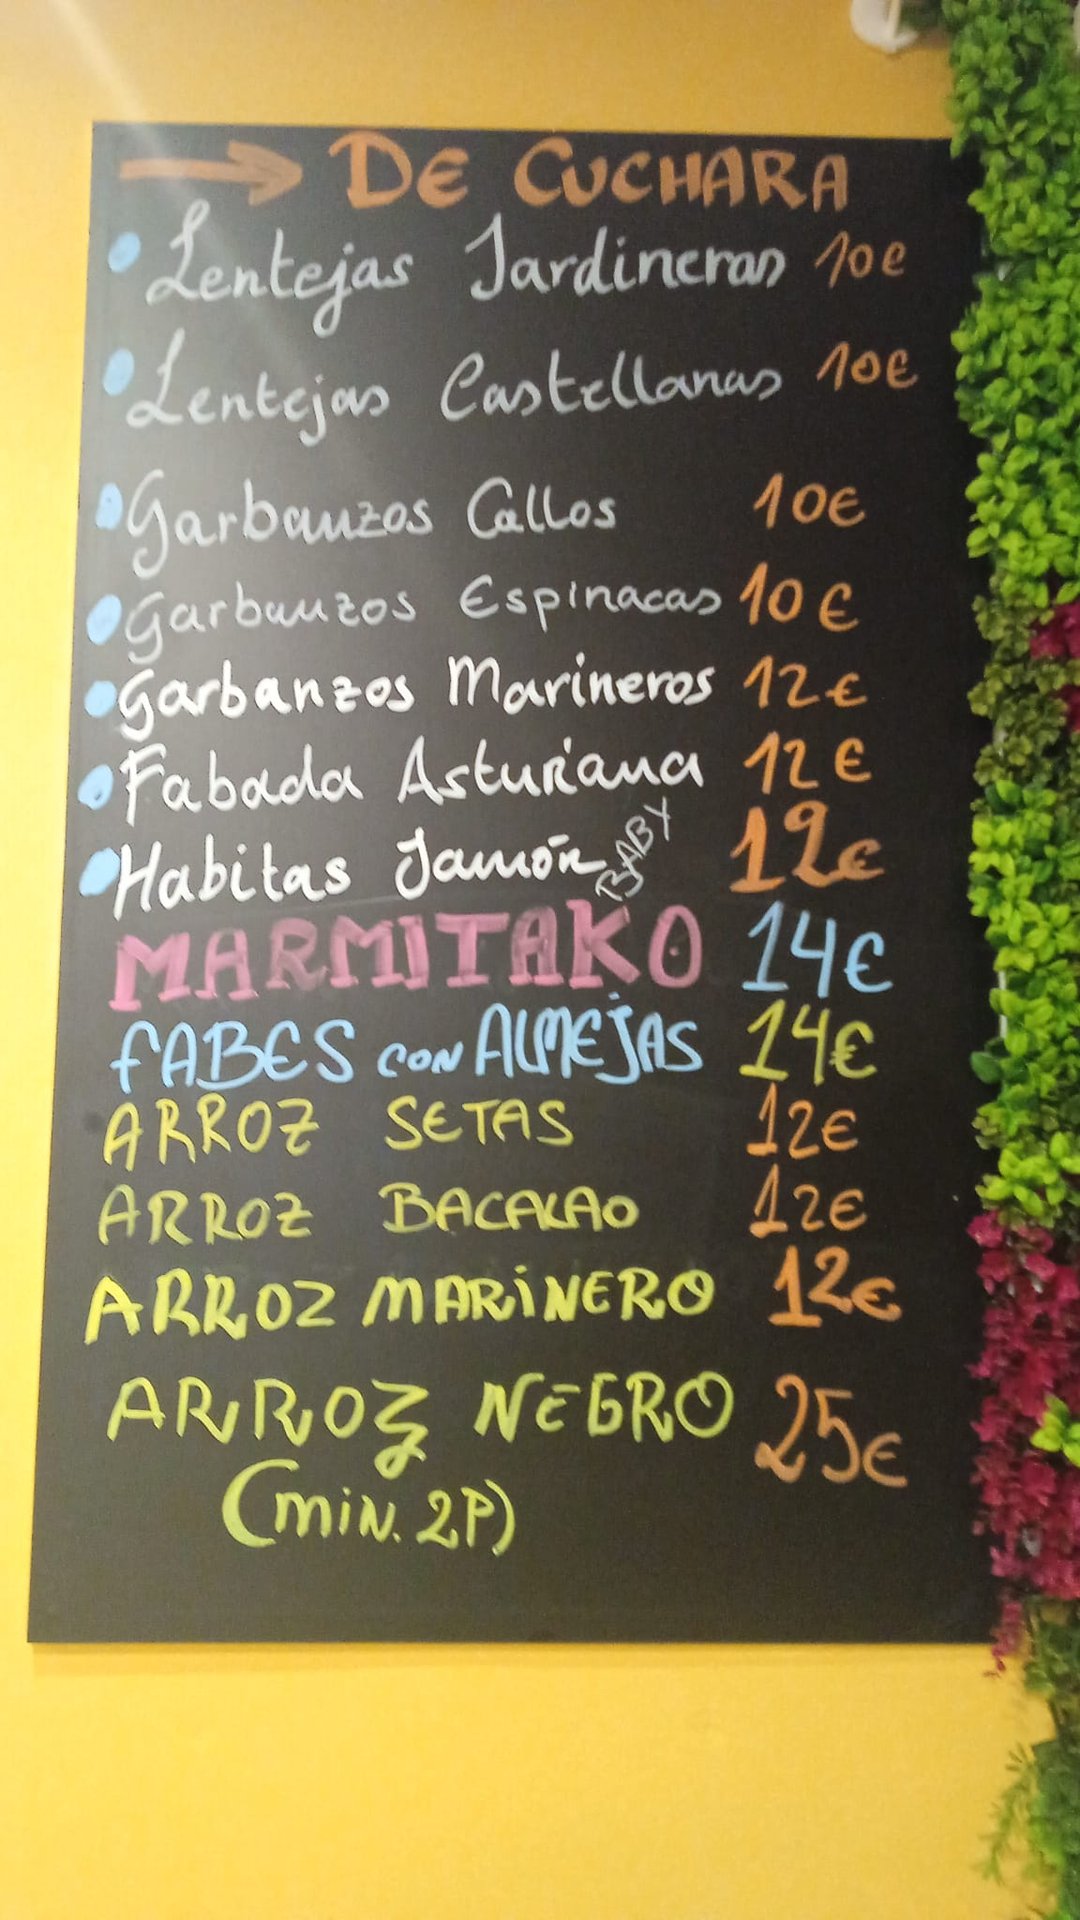 → DE CUCHARA
• Lentejas Jardineras 10€
• Lentejas Castellanas 10€
• Garbanzos Callos 10€
• Garbanzos Espinacas 10€
• Garbanzos Marineros 12€
• Fabada Asturiana 12€
• Habitas Jamón BABY 12€
MARMITAKO 14€
FABES CON ALMEJAS 14€
ARROZ SETAS 12€
ARROZ BACALAO 12€
ARROZ MARINERO 12€
ARROZ NEGRO 25€
(MIN. 2P)